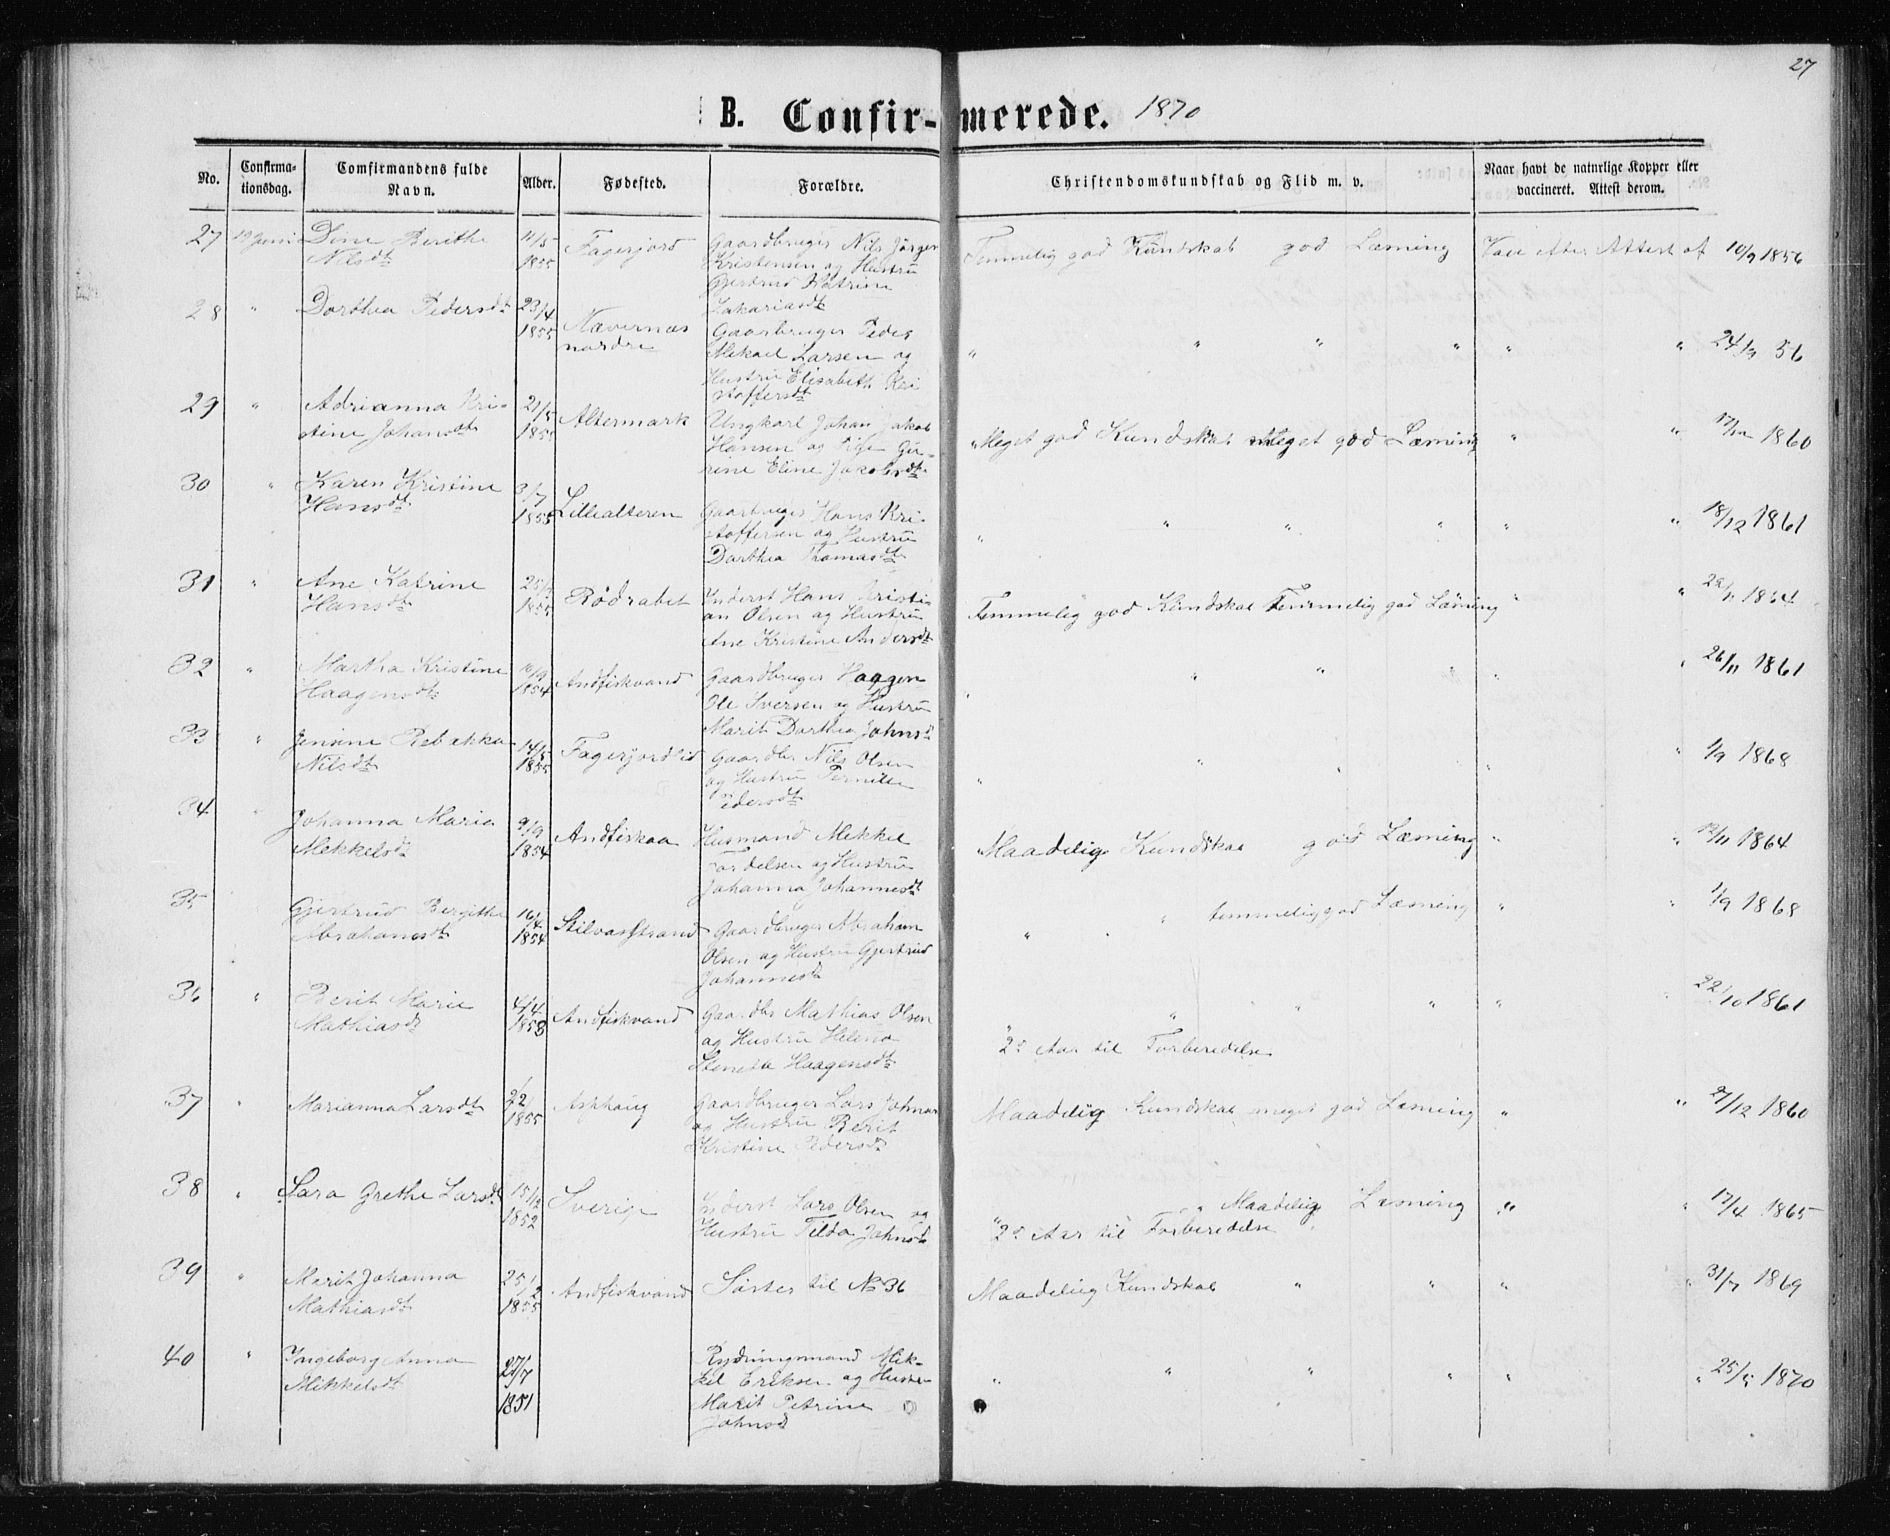 27
B. Confir-merede. 1870
No.
Confirma-
tionsdag.
Comfirmandens fulde
Navn.
Alder.
Fødested.
Forældre.
Christendomskundskab og Flid m. v.
Naar havt de naturlige Kopper eller
vaccineret. Attest derom.
27 19 Juni Dine Berithe Nilsdt 11/5 1855 Fagerjord
Gaardbruger Nils Jörgen
Kristensen og Hustru
Gjertrud Katrine
Zakariasdt
Temmelig god Kundskab god Læsning Vacc efter Attest af 10/9 1856
28 " Dorthea Pedersdt 23/4 1855 Nævernæs nordre
Gaarbruger Peder
Mekael Larsen og
Hustru Elisabeth Kri
stoffersdt
" " " " " " 24/9 56
29 " Adrianna Kri-
stine Johansdt 21/5 1855 Altermark
Ungkarl Johan Jakob
Hansen og Pige
Eline Jakobsdt
" Meget god Kundskab meget god Læsning " " 17/12 1860
30 " Karen Kristine
Hansdt 3/7 1855 Lillealteren
Gaarbruger Hans Kri-
stoffersen og Hustru
Dorthea Thomasdt
" " " " " " 18/12 1861
31 " Ane Katrine
Hansdt 1855 Rödrabet
Inderst Hans Kristi-
an Olsen og Hustru
Ane Kristine Andersdt
Temmelig god Kundskab Temmelig god Læsning " " 1854
32 " Martha Kristine
Haagensdt 1854 Andfiskvand
Gaardbruger Haagen
Ole Iversen og Hustru
Marit Dorthea Johnsdt
" " " " " " 26/11 1861
33 " Jensine Rebekka
Nilsdt 14/5 1855 Fagerjordlid
Gaardbr Nils Olsen
og Hustru Pernille
Pedersdt
" " " " " 1/9 1868
34 " Johanna Maria
Mekkelsdt 9/9 1854 Andfiskaa
Husmand Mekkel
Tordelsen og Hustru
Johanna Johannesdt
" Maadelig Kundskab god Læsning " " 12/11 1864
35 Gjertrud Bergithe
Abrahamsdt 16/4 1854 Stilvasstrand
Gaardbruger Abraham
Olsen og Hustru Gjertrud
Johannesdt
" " temmelig god Læsning " " 1/9 1868
36 " Berit Marie
Mathiasdt 4/4 1853 Andfiskvand
Gaardbr Mathias Olsen
og Hustru Helena
Haagensdt
" " " " " " 22/10 1861
2d Aar til Forberedelse
37 " Marianna Larsdt 2/2 1855 Askhaug
Gaardbruger Lars Johnsen
og Hustru Berit
Kristine Pedersdt
Maadelig Kundskab meget god Læsning " " 27/12 1860
38 " Sara Grethe Larsdt 15/12 1852 Sverige
Inderst Lars Olsen og
Hustru Tilda Johnsdt
" " Maadelig Læsning " " 17/4 1865
2d Aar til Forberedelse
39 " Marit Johanna
Mathiasdt 25/2 1855 Andfiskvand
Söster til No 36
Maadelig Kundskab " " " " 31/7 1869
40 " Ingeborg Anna
Mikkelsdt 27/7 1851
Rydningsmand Mik-
kel Eriksen og Hustru
Marit Petrine
Johnsd
" " " " " " 25/5 1870